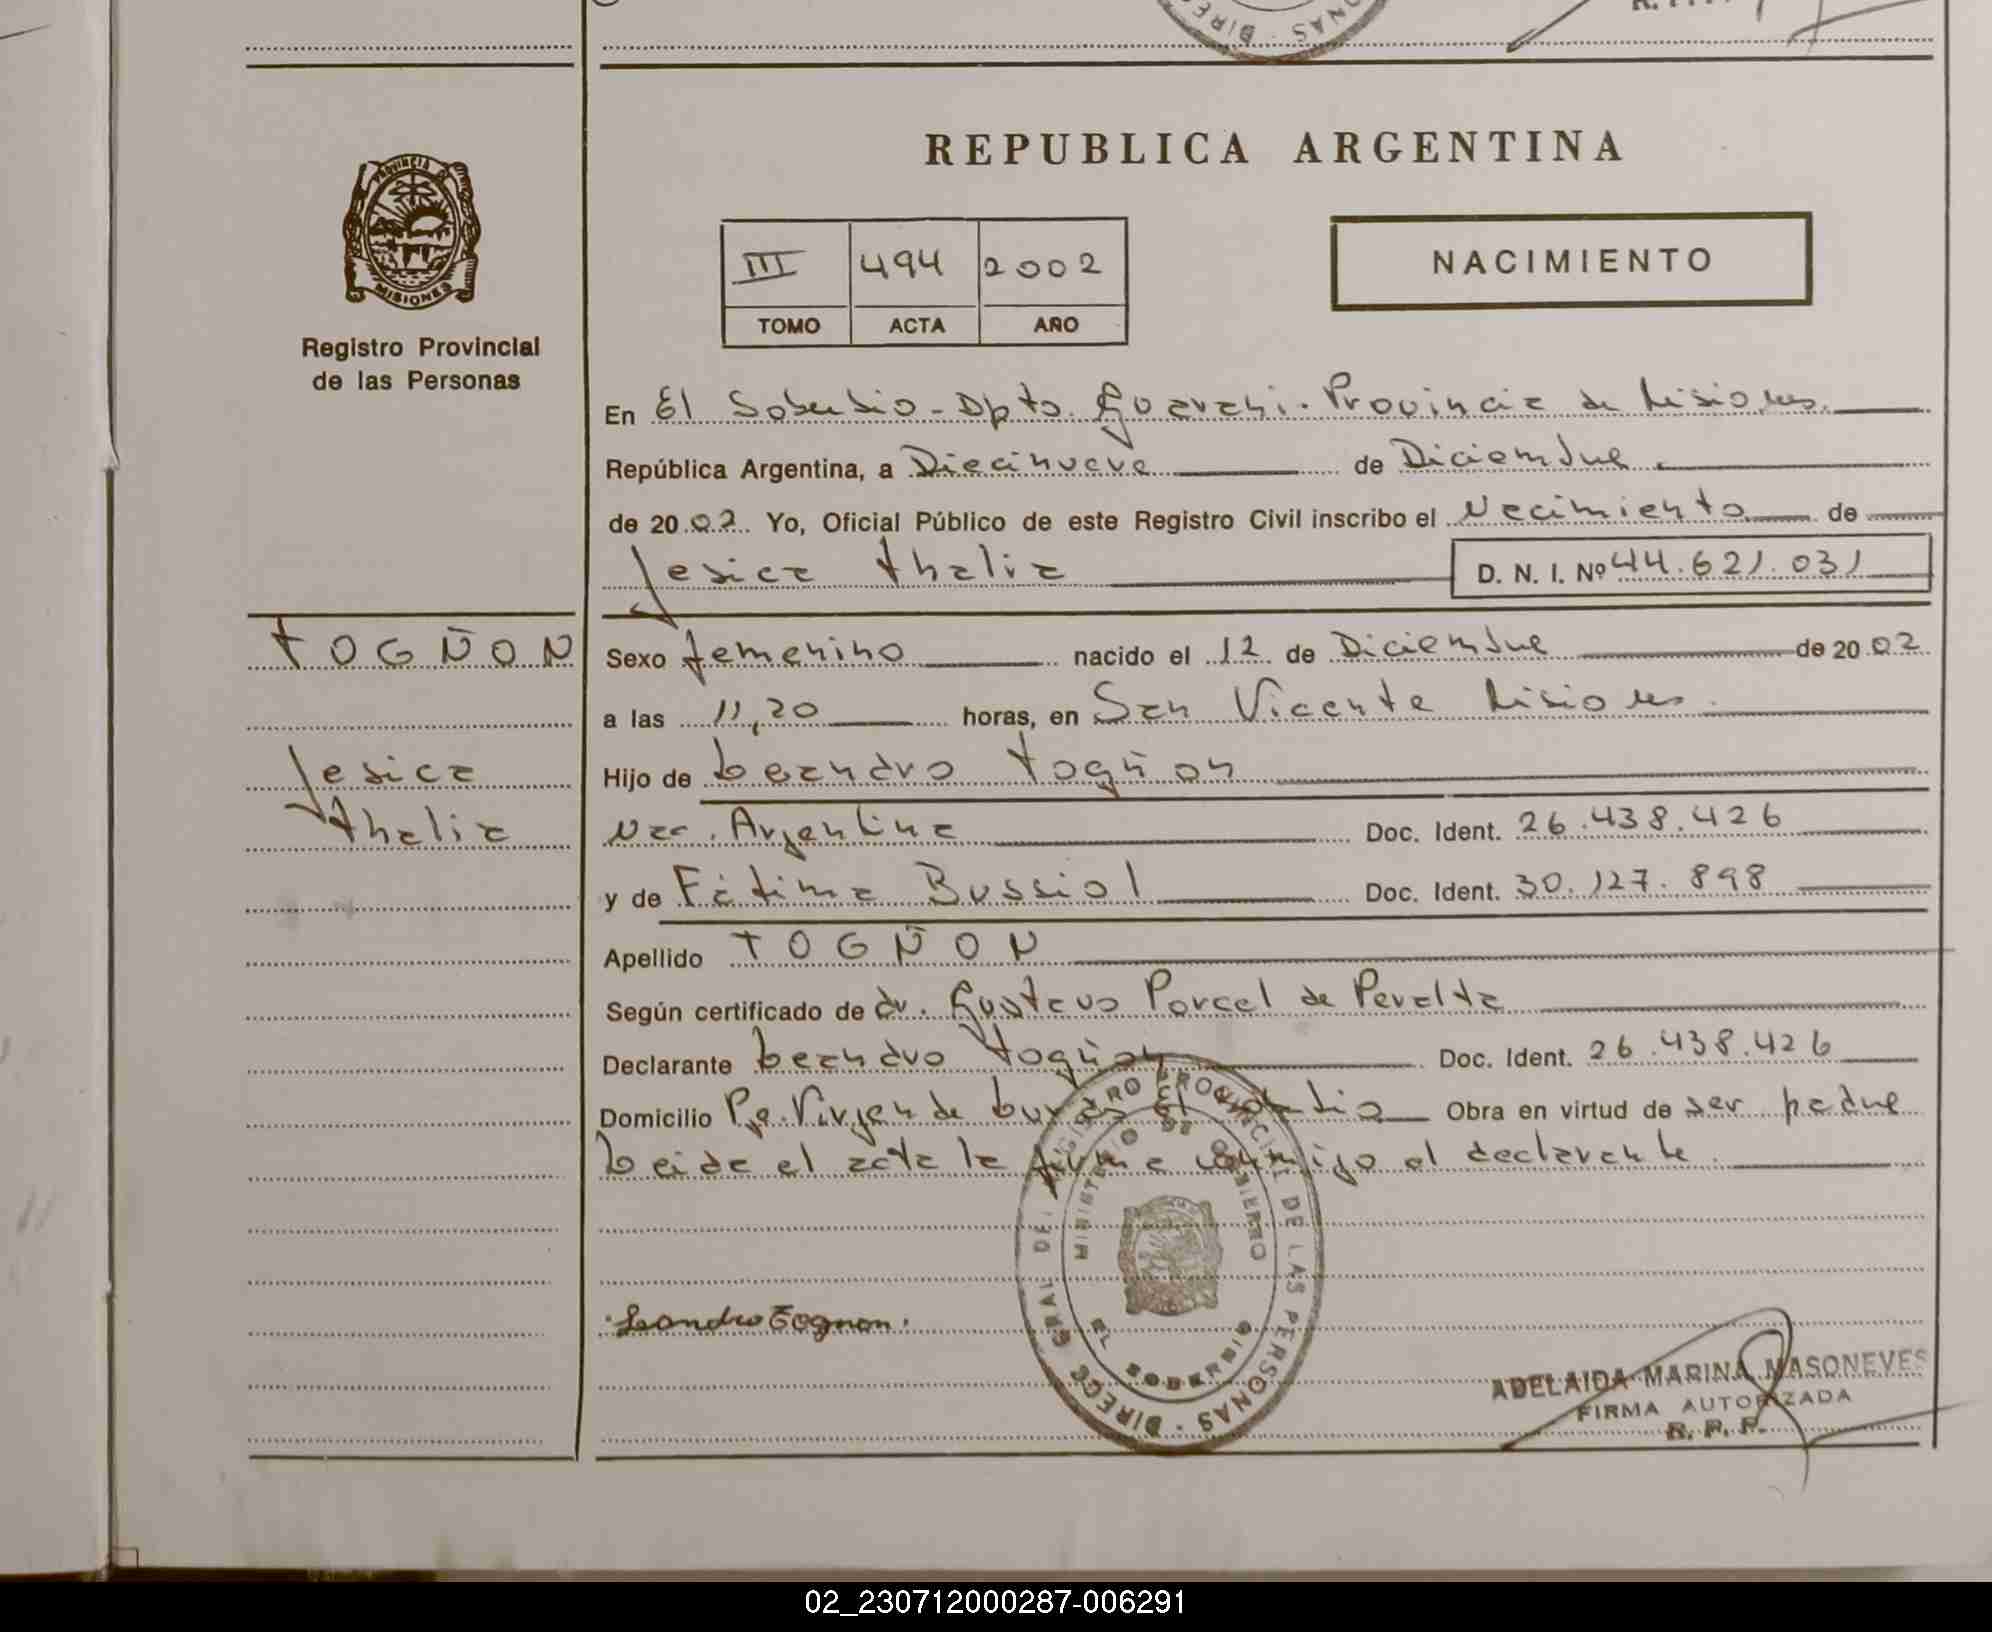 REPUBLICA ARGENTINA
PROVINCIA DE
MISIONES
Registro Provincial
de las Personas
III 494 2002
TOMO ACTA AÑO
NACIMIENTO
En El Soberbio - Dpto. Guarani. Provincia de Misiones.
República Argentina, a Diecinueve de Diciembre
de 2002. Yo, Oficial Público de este Registro Civil inscribo el Nacimiento de
Jesica thalia D. N. I. Nº 44.621.031
TOGÑON
Jesica
thalia
Sexo femenino nacido el 12 de Diciembre de 2002
a las 11,20 horas, en San Vicente Misiones.
Hijo de Leandro Togñon
Nac. Argentina Doc. Ident. 26.438.426
y de Fátima Bussiol Doc. Ident. 30.127.898
Apellido TOGÑON
Según certificado de dr. Gustavo Porcel de Peralta
Declarante Leandro Togñon Doc. Ident. 26.438.426
Domicilio Pje. Virgen de El Soberbio Obra en virtud de ser padre
Leida el acta la firma conmigo el declarante.
Leandro Tognon.
DIRECC GRAL DEL REGISTRO PROVINCIAL DE LAS PERSONAS
MINISTERIO DE GOBIERNO
EL SOBERBIO
ADELAIDA MARINA MASONEVES
FIRMA AUTORIZADA
R. P. P.
02_230712000287-006291